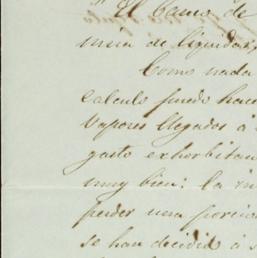 "El banco de
mia de liquidar
Como nada
calculo puedo hace
vapores llegados á
gasto exhorbitan
muy bien: la
perder una porcio
se han decidid á s